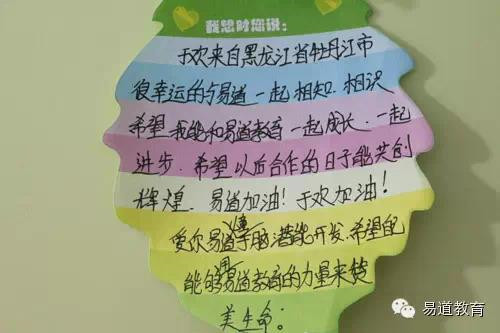 我想对您说:
于欢来自黑龙江省牡丹江市
很幸运的与易道一起相知.相识
希望我能和易道教育一起成长.一起
进步.希望以后合作的日子能共创
辉煌.易道加油!于欢加油!
爱你易道 脑潜能开发.希望
能够用易道教育的力量来赞
美生命。
易道教育